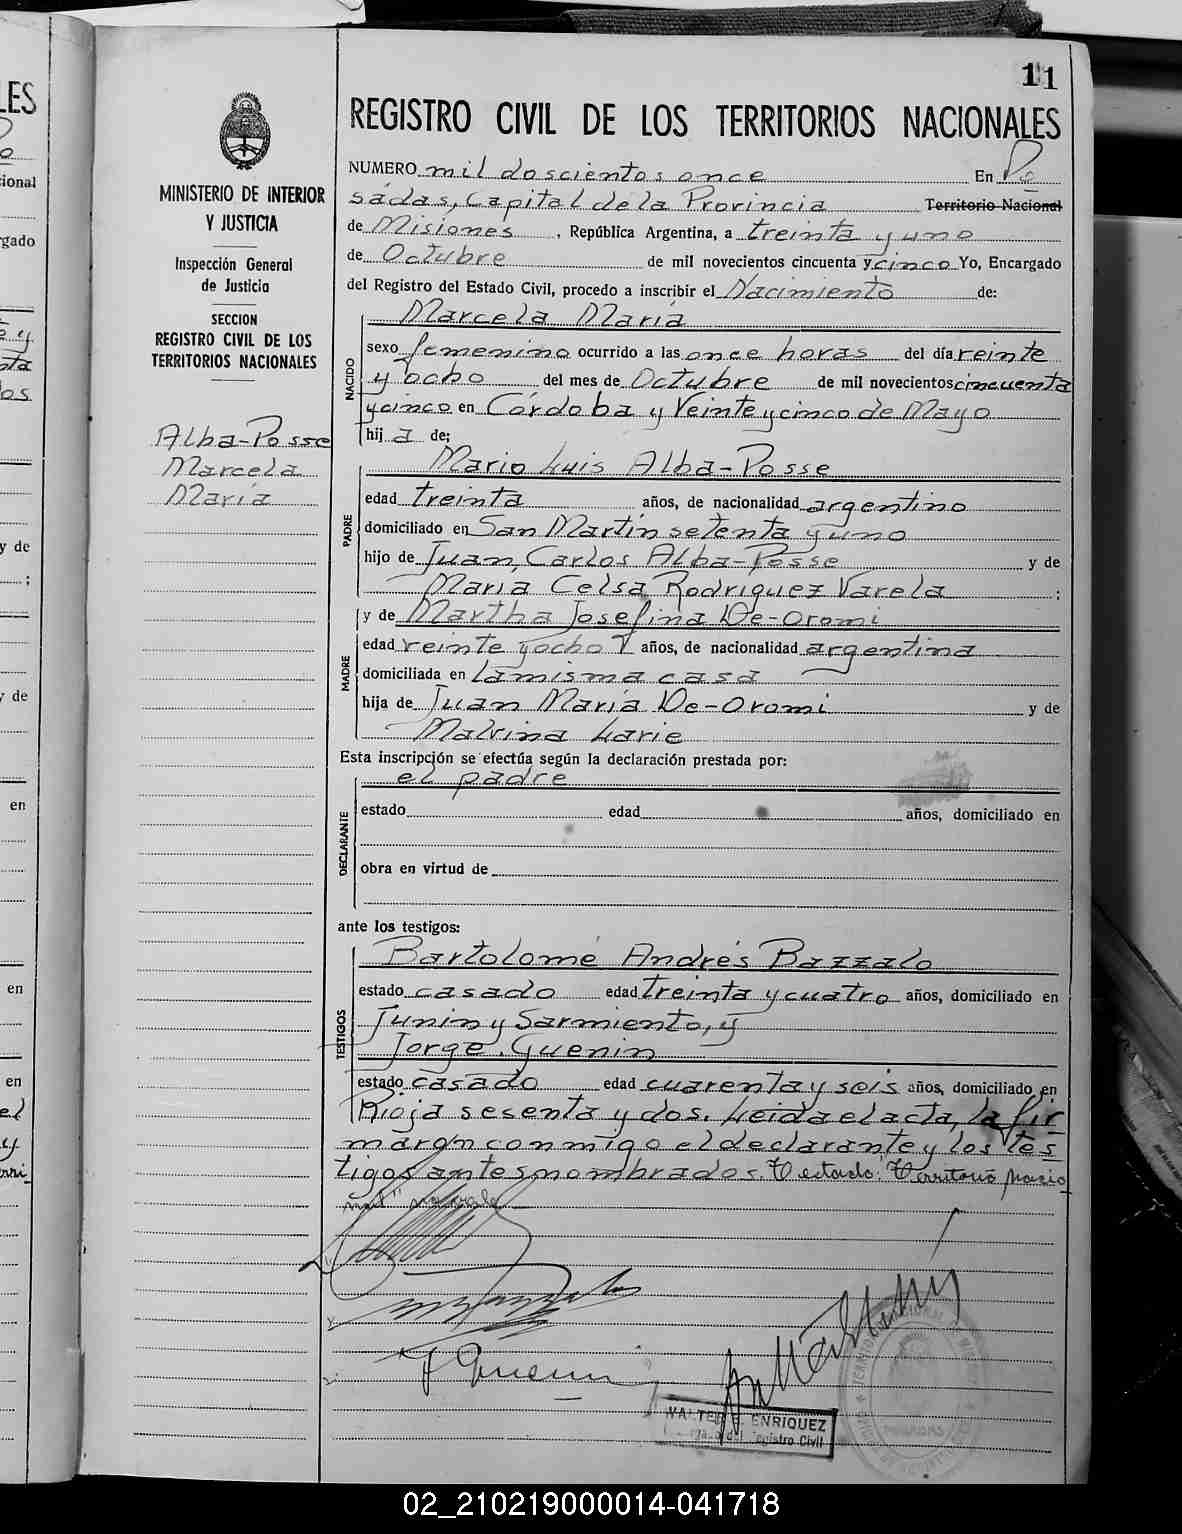 11
REGISTRO CIVIL DE LOS TERRITORIOS NACIONALES
MINISTERIO DE INTERIOR
Y JUSTICIA
Inspección General
de Justicia
SECCION
REGISTRO CIVIL DE LOS
TERRITORIOS NACIONALES
Alba-Posse
Marcela
María
NUMERO mil doscientos once En Po
sádas, Capital de la Provincia Territorio Nacional
de Misiones, República Argentina, a treinta y uno
de Octubre de mil novecientos cincuenta y cinco Yo, Encargado
del Registro del Estado Civil, procedo a inscribir el Nacimiento de:
NACIDO
Marcela María
sexo femenino ocurrido a las once horas del día veinte
y ocho del mes de Octubre de mil novecientos cincuenta
y cinco en Córdoba y Veinte y cinco de Mayo
hija de;
PADRE
Mario Luis Alba-Posse
edad treinta años, de nacionalidad argentino
domiciliado en San Martín setenta y uno
hijo de Juan Carlos Alba-Posse y de
María Celsa Rodriguez Varela ;
MADRE
y de Martha Josefina De-Oromi
edad veinte y ocho años, de nacionalidad argentina
domiciliada en la misma casa
hija de Juan María De-Oromi y de
Malvina Larie
Esta inscripción se efectúa según la declaración prestada por:
el padre
DECLARANTE
estado edad años, domiciliado en
obra en virtud de
ante los testigos:
TESTIGOS
Bartolomé Andrés Bazzalo
estado casado edad treinta y cuatro años, domiciliado en
Junin y Sarmiento, y
Jorge Guenin
estado casado edad cuarenta y seis años, domiciliado en
Rioja sesenta y dos. Leida el acta, la fir
marón conmigo el declarante y los tes
tigos antes nombrados. Testado: "Territorio Nacio
nal" no vale
J Guenin
WALTER ENRIQUEZ
del Registro Civil
POSADAS
02_210219000014-041718